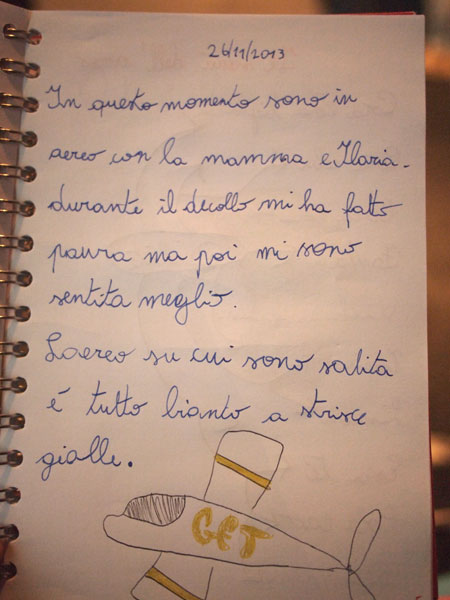 26/11/2013
In questo momento sono in
aereo con la mamma e Ilaria.
durante il decollo mi ha fatto
paura ma poi mi sono
sentita meglio.
Laereo su cui sono salita
é tutto bianto a strisce
gialle.
GET